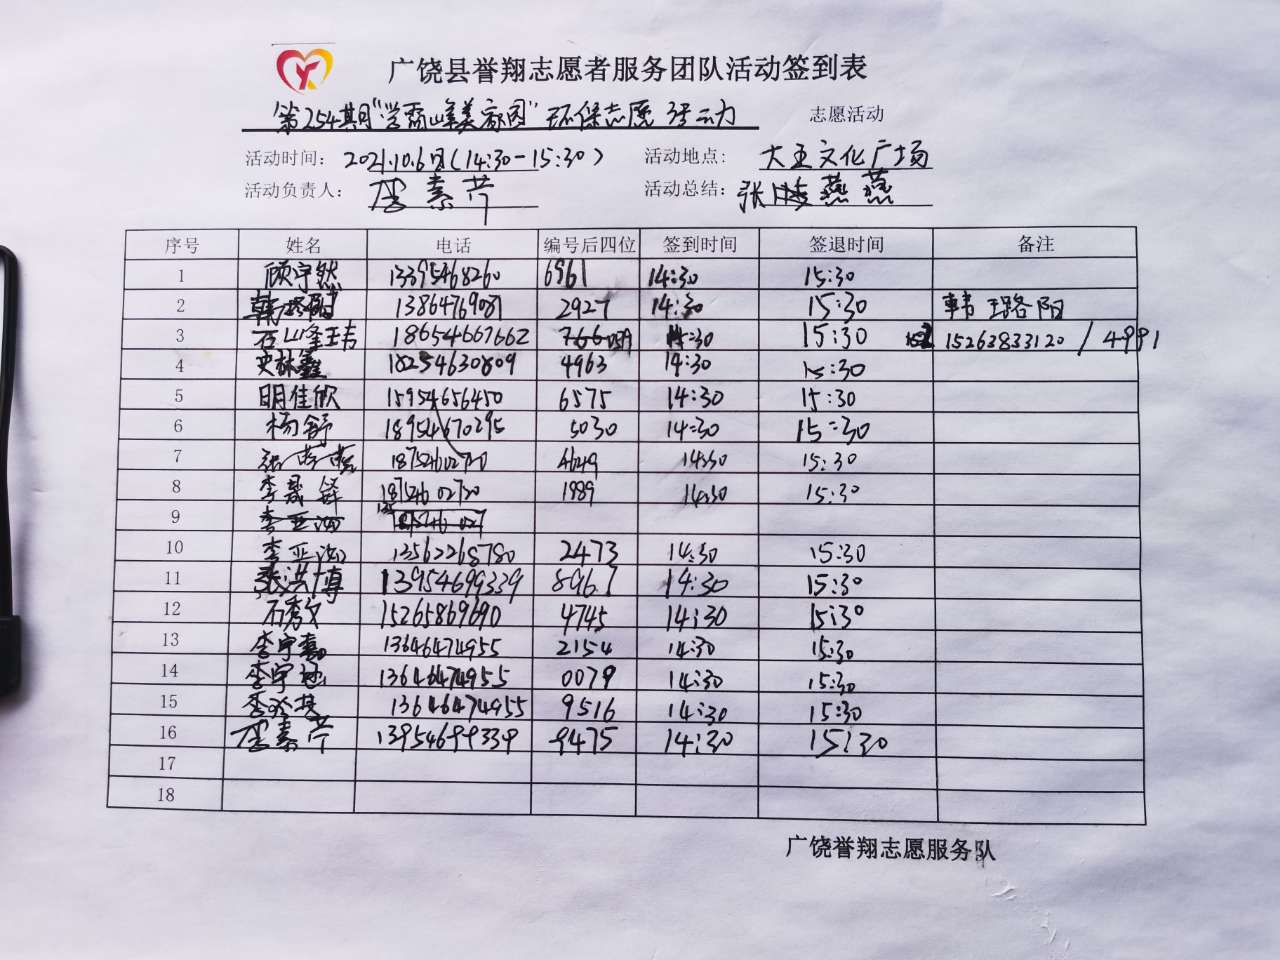 广饶县誉翔志愿者服务团队活动签到表
第254期"学雷锋美家园"环保志愿活动 志愿活动
活动时间: 2021.10.6日(14:30-15:30) 活动地点: 大王文化广场
活动负责人: 李素芹 活动总结: 张 燕燕
序号 姓名 电话 编号后四位 签到时间 签退时间 备注
1 顾宇然 13395468260 6961 14:30 15:30
2 2927 14:30 15:30 韩璐阳
3 18654667662 14:30 15:30 15263833120/4991
4 史林鑫 18254630809 4963 14:30 15:30
5 明佳欣 15954656450 6575 14:30 15:30
6 杨舒 18954670295 5030 14:30 15:30
7 4649 14:30 15:30
8 李晟锋 1989 14:30 15:30
9
10 13562268780 2473 14:30 15:30
11 张洪博 13954699339 8967 14:30 15:30
12 石秀文 15265869690 4745 14:30 15:30
13 李宇嘉 13646474955 2154 14:30 15:30
14 李宇 13646474955 0079 14:30 15:30
15 13646474955 9516 14:30 15:30
16 李素芹 13954699339 9475 14:30 15:30
17
18
广饶誉翔志愿服务队